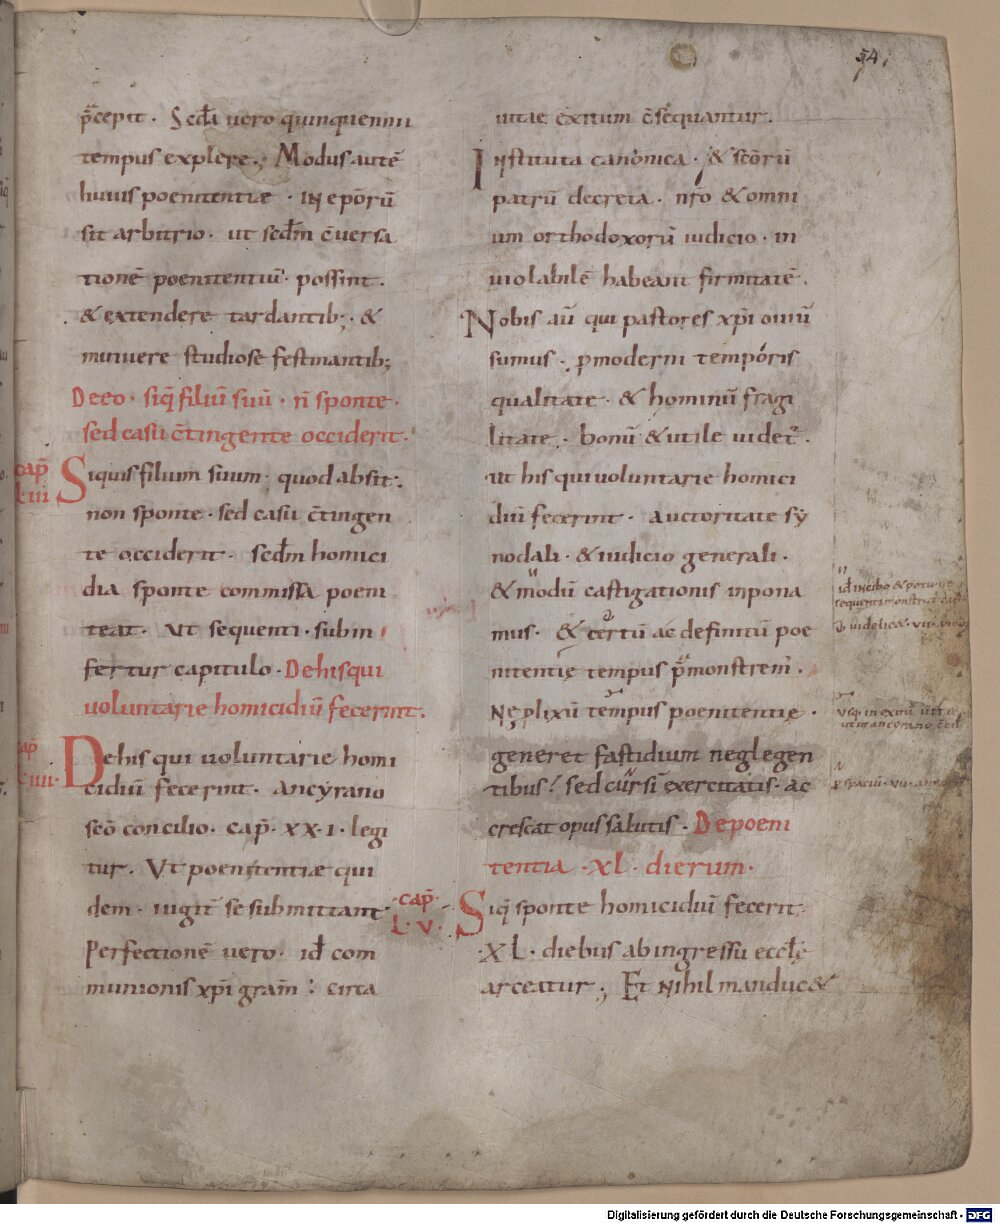 54
p̄cepit. Scđa uero quinquennii
tempus explere; Modus autē
huius poenitentiæ. in epōrū
sit arbitrio. ut scđm c̄uersa
tionē poenitentiū. possint.
& extendere tardantib;. &
minuere studiose festinantib;
De eo. siq̄ filiū suū. n̄ sponte.
sed casu c̄tingente occiderit.
cap̄
L iii
Siquis filium suum. quod absit.
non sponte. sed casu c̄tingen
te occiderit. scđm homici
dia sponte commissa poeni
teat. Ut sequenti. subin
fertur capitulo. De his qui
uoluntarie homicidiū fecerint.
cap
L iiii.
De his qui uoluntarie homi
cidiū fecerint. ancyrano
scō concilio. cap̄. xx.i. legi
tur. Ut poenitentiæ qui
dem. iugit̄ se submittant
Perfectionē uero. iđ com
munionis xp̄i gram̄: circa
uitae exitum c̄sequantur.
Instituta canonica. & scōrū
patrū decreta. nr̄o & omni
um orthodoxorū iudicio. in
uiolabilē habeant firmitatē.
Nobis aū qui pastores xp̄i ouiū
sumus. p moderni temporis
qualitate. & hominū fragi
litate. bonū & utile uidet̄.
ut his qui uoluntarie homici
diū fecerint. auctoritate sy
nodali. & iudicio generali.
& modū castigationis inpona
mus. & certū ac definitū poe
nitentię tempus p̄monstrem̄.
Ne plixū tempus poenitentię.
generet fastidium neglegen
tibus! sed cursī exercitatis. ac
crescat opus salutis. De poeni
tentia. XL. dierum.
cap̄
L.v.
Siq̄ sponte homicidiū fecerit.
XL. diebus ab ingressu eccłę
arceatur; Et nihil manduc&
iđ in cibo & potu
sequenti monstrat
Digitalisierung gefördert durch die Deutsche Forschungsgemeinschaft - DFG